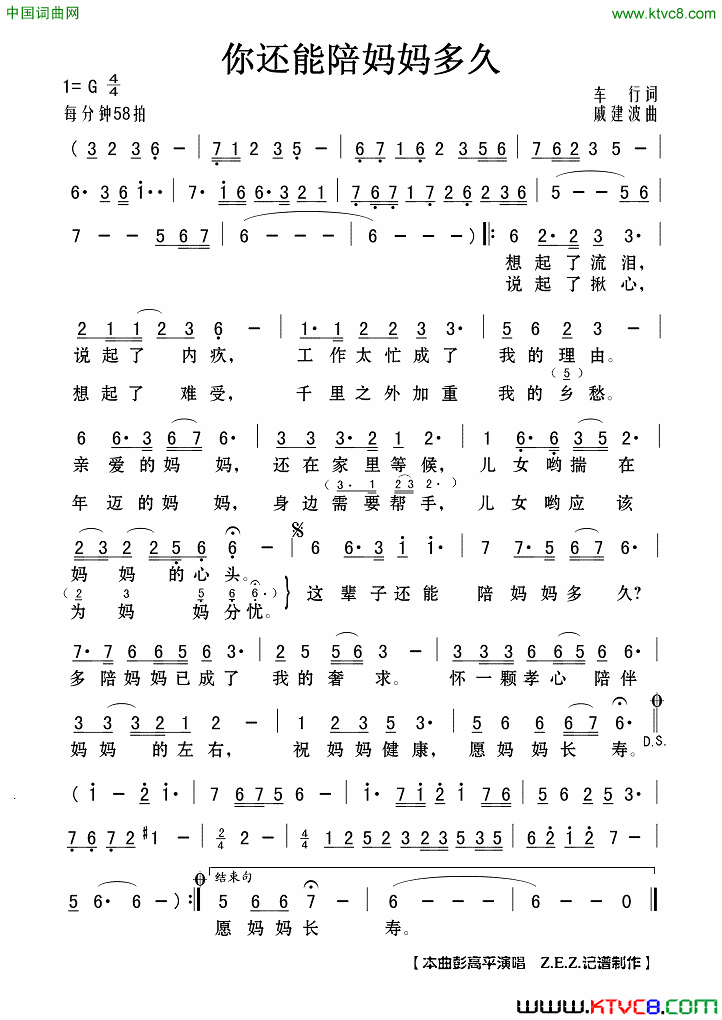 中国词曲网
http://
www.ktvc8.com
你还能陪妈妈多久
1= G 4/4
车 行 词
每分钟58拍
戚建波 曲
( 3 2 3 6 – | 7 1 2 3 5 – | 6 7 1 6 2 3 5 6 | 7 6 2 3 5 – |
6· 3 6 i·· | 7· i 6 6· 3 2 1 | 7 6 7 1 7 2 6 2 3 6 | 5 – – 5 6 |
7 – – 5 6 7 | 6 – – – | 6 – – ) ‖: 6 2· 2 3 3· |
想起了流泪,
说起了揪心,
2 1 1 2 3 6 – | 1· 1 2 2 3 3· | 5 6 2 3 – |
说起了 内疚, 工作太忙成了 我的理由。
( 5 )
想起了 难受, 千里之外加重 我的乡愁。
6 6· 3 6 7 6· | 3 3 3· 2 2 2· | 1 6· 6 3 5 2· |
亲爱的妈 妈, 还在家里等候, 儿女哟揣在
( 3· 1 2 3 2· )
年迈的妈 妈, 身边需要帮手, 儿女哟应该
2 3 2 2 5 6 6· | 6 6· 3 i i | 7 7· 5 6 7 6· |
妈 妈 的心头。
( 2 3 5 6 6· )
这辈子还能 陪妈妈多 久?
为妈 妈分忧。
7· 7 6 6 5 6 3· | 2 5 5 5 6 3 – | 3 3 3 6 6 5 5 |
多陪妈妈已成了 我的奢 求。 怀一颗孝心 陪伴
3 3 3 2 1 2 – | 1 2 3 5 3· | 5 6 6 6 7 6· ‖
D.S.
妈妈 的左右, 祝妈妈健康, 愿妈妈长 寿。
( i – 2 i· | 7 6 7 5 6 – | i· 7 i 2 i 5 | 5 6 2 3 – |
7 6 7 2 #1 – | 2/4 2 – | 4/4 1 2 5 2 3 2 3 5 3 5 | 6 2 i 7 – |
结束句
5 6· 6 – ) :‖ 5 6 6 7 – | 6 – – – | 6 – – 0 ‖
愿妈妈长 寿。
【本曲彭高平演唱 Z.E.Z.记谱制作】
www.KTVC8.com